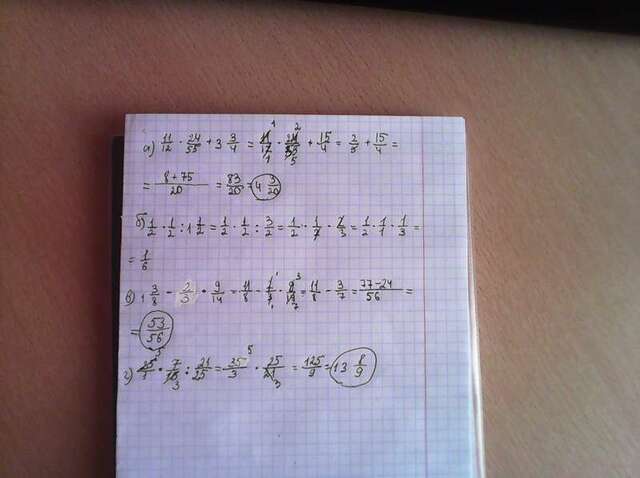 а) 11/12 · 24/55 + 3 3/4 = 11/12 · 24/55 + 15/4 = 2/5 + 15/4 =
= 8+75/20 = 83/20 = 4 3/20
б) 1/2 · 1/2 : 1 1/2 = 1/2 · 1/2 : 3/2 = 1/2 · 1/2 · 2/3 = 1/2 · 1/1 · 1/3 =
= 1/6
в) 1 3/8 - 2/3 · 9/14 = 11/8 - · = 11/8 - 3/7 = 77-24/56 =
= 53/56
г) · : 21/25 = 35/3 · 25/21 = 125/9 = 13 8/9